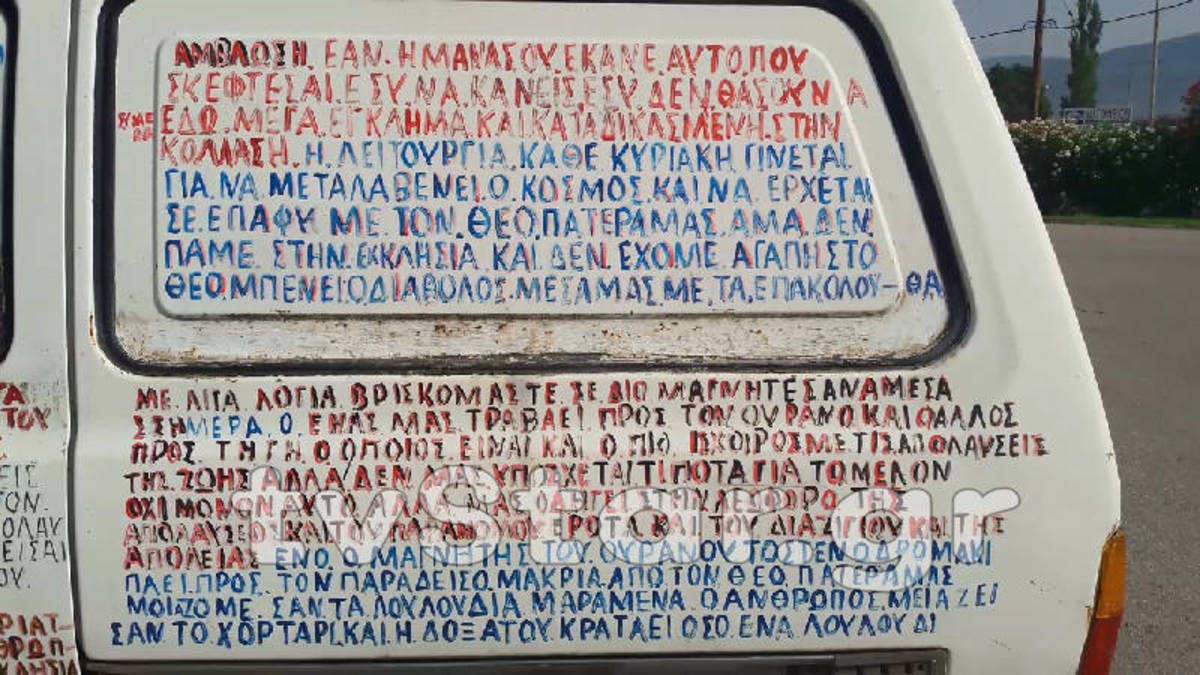 ΑΜΒΛΩΣΗ. ΕΑΝ. Η ΜΑΝΑ ΣΟΥ. ΕΚΑΝΕ. ΑΥΤΟ. ΠΟΥ
ΣΚΕΦΤΕΣΑΙ. ΕΣΥ. ΝΑ. ΚΑΝΕΙΣ. ΕΣΥ. ΔΕΝ. ΘΑ ΣΟΥΝ Α
ΕΔΩ. ΜΕΓΑ. ΕΓΚΛΗΜΑ. ΚΑΙ. ΚΑΤΑΔΙΚΑΣΜΕΝΗ. ΣΤΗΝ
ΚΟΛΑΣΗ. Η. ΛΕΙΤΟΥΡΓΙΑ. ΚΑΘΕ ΚΥΡΙΑΚΗ. ΓΙΝΕΤΑΙ
ΓΙΑ. ΝΑ. ΜΕΤΑΛΑΒΕΝΕΙ. Ο. ΚΟΣΜΟΣ. ΚΑΙ ΝΑ. ΕΡΧΕΤΑΙ
ΣΕ. ΕΠΑΦΥ. ΜΕ. ΤΟΝ. ΘΕΟ. ΠΑΤΕΡΑ ΜΑΣ. ΑΜΑ. ΔΕΝ.
ΠΑΜΕ. ΣΤΗΝ. ΕΚΚΛΗΣΙΑ. ΚΑΙ. ΔΕΝ. ΕΧΟΜΕ. ΑΓΑΠΗ. ΣΤΟ
ΘΕΟ. ΜΠΕΝΕΙ Ο ΔΙΑΒΟΛΟΣ. ΜΕΣΑ ΜΑΣ. ΜΕ. ΤΑ. ΕΠΑΚΟΛΟΥ-ΘΑ
ΜΕ. ΛΙΓΑ. ΛΟΓΙΑ. ΒΡΙΣΚΟΜΑΣΤΕ. ΣΕ. ΔΙΟ ΜΑΓΝΗΤΕΣ ΑΝΑΜΕΣΑ
ΣΣΗΜΕΡΑ. Ο. ΕΝΑΣ. ΜΑΣ. ΤΡΑΒΑΕΙ. ΠΡΟΣ. ΤΟΝ ΟΥΡΑΝΟ. ΚΑΙ Ο ΑΛΛΟΣ
ΠΡΟΣ. ΤΗ ΓΗ. Ο ΟΠΟΙΟΣ. ΕΙΝΑΙ ΚΑΙ. Ο. ΠΙΟ. ΙΣΧΟΙΡΟΣ. ΜΕ ΤΙΣ ΑΠΟΛΑΥΣΕΙΣ
ΤΗΣ. ΖΩΗΣ ΑΛΛΑ ΔΕΝ. ΜΑΣ ΥΠΟΣΧΕΤΑΙ ΤΙΠΟΤΑ ΓΙΑ ΤΟ ΜΕΛΟΝ
ΟΧΙ ΜΟΝΟΝ ΑΥΤΟ. ΑΛΛΑ. ΜΑΣ. ΟΔΗΓΕΙ. ΣΤΗΝ. ΛΕΟΦΟΡΟ. ΤΗΣ
ΑΠΟΛΑΥΣΕΟΣ ΚΑΙ ΤΟΥ. ΠΑΡΑΝΟΜΟΥ ΕΡΟΤΑ. ΚΑΙ. ΤΟΥ ΔΙΑΖΙΓΙΟΥ ΚΑΙ ΤΗΣ
ΑΠΟΛΕΙΑΣ ΕΝΟ. Ο. ΜΑΓΝΗΤΗΣ ΤΟΥ. ΟΥΡΑΝΟΥ ΤΟ ΣΤΕΝΟ ΔΡΟΜΑΚΙ
ΠΑΕΙ. ΠΡΟΣ. ΤΟΝ ΠΑΡΑΔΕΙΣΟ. ΜΑΚΡΙΑ. ΑΠΟ ΤΟΝ ΘΕΟ. ΠΑΤΕΡΑ ΜΑΣ
ΜΟΙΑΖΟΜΕ. ΣΑΝ. ΤΑ. ΛΟΥΛΟΥΔΙΑ. ΜΑΡΑΜΕΝΑ. Ο ΑΝΘΡΩΠΟΣ. ΜΕΙΑΖΕΙ
ΣΑΝ ΤΟ ΧΟΡΤΑΡΙ. ΚΑΙ. Η ΔΟΞΑ ΤΟΥ. ΚΡΑΤΑΕΙ ΟΣΟ ΕΝΑ ΛΟΥΛΟΥΔΙ
tvstar.gr
ΤΟΥ
ΕΙΣ
ΤΟΝ.
ΟΛΑΥ
ΕΙΣΑΙ
ΟΥ.
ΡΙΑΤ-
ΘΡΩΠ-
ΚΛΗΣΙΑ